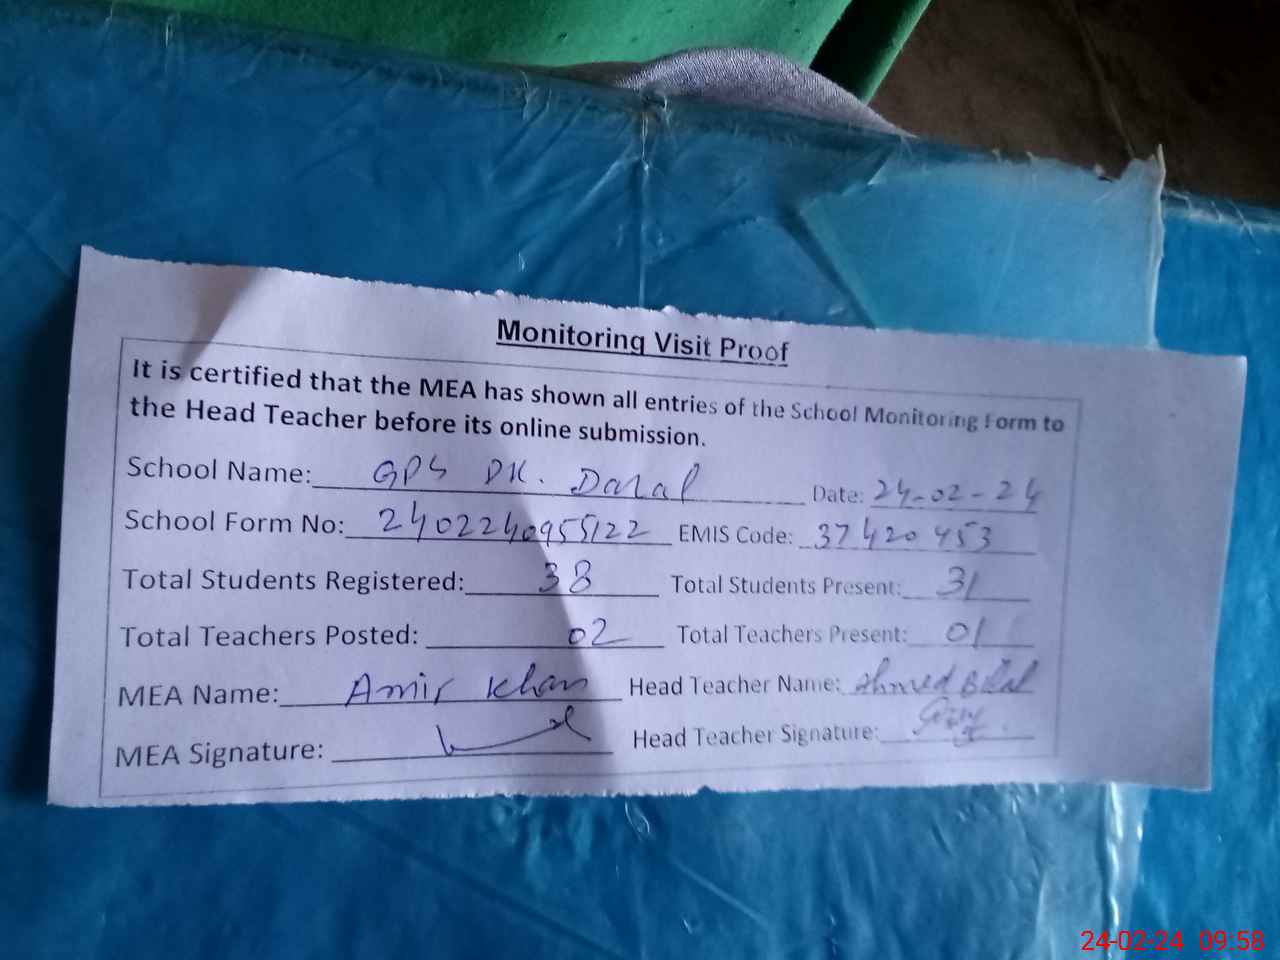 Monitoring Visit Proof
It is certified that the MEA has shown all entries of the School Monitoring Form to
the Head Teacher before its online submission.
School Name: GPS DK. Dalal Date: 24-02-24
School Form No: 2402240955122 EMIS Code: 37420453
Total Students Registered: 38 Total Students Present: 31
Total Teachers Posted: 02 Total Teachers Present: 01
MEA Name: Amir Khan Head Teacher Name: Ahmed Bilal
MEA Signature: Head Teacher Signature:
24-02-24 09:58